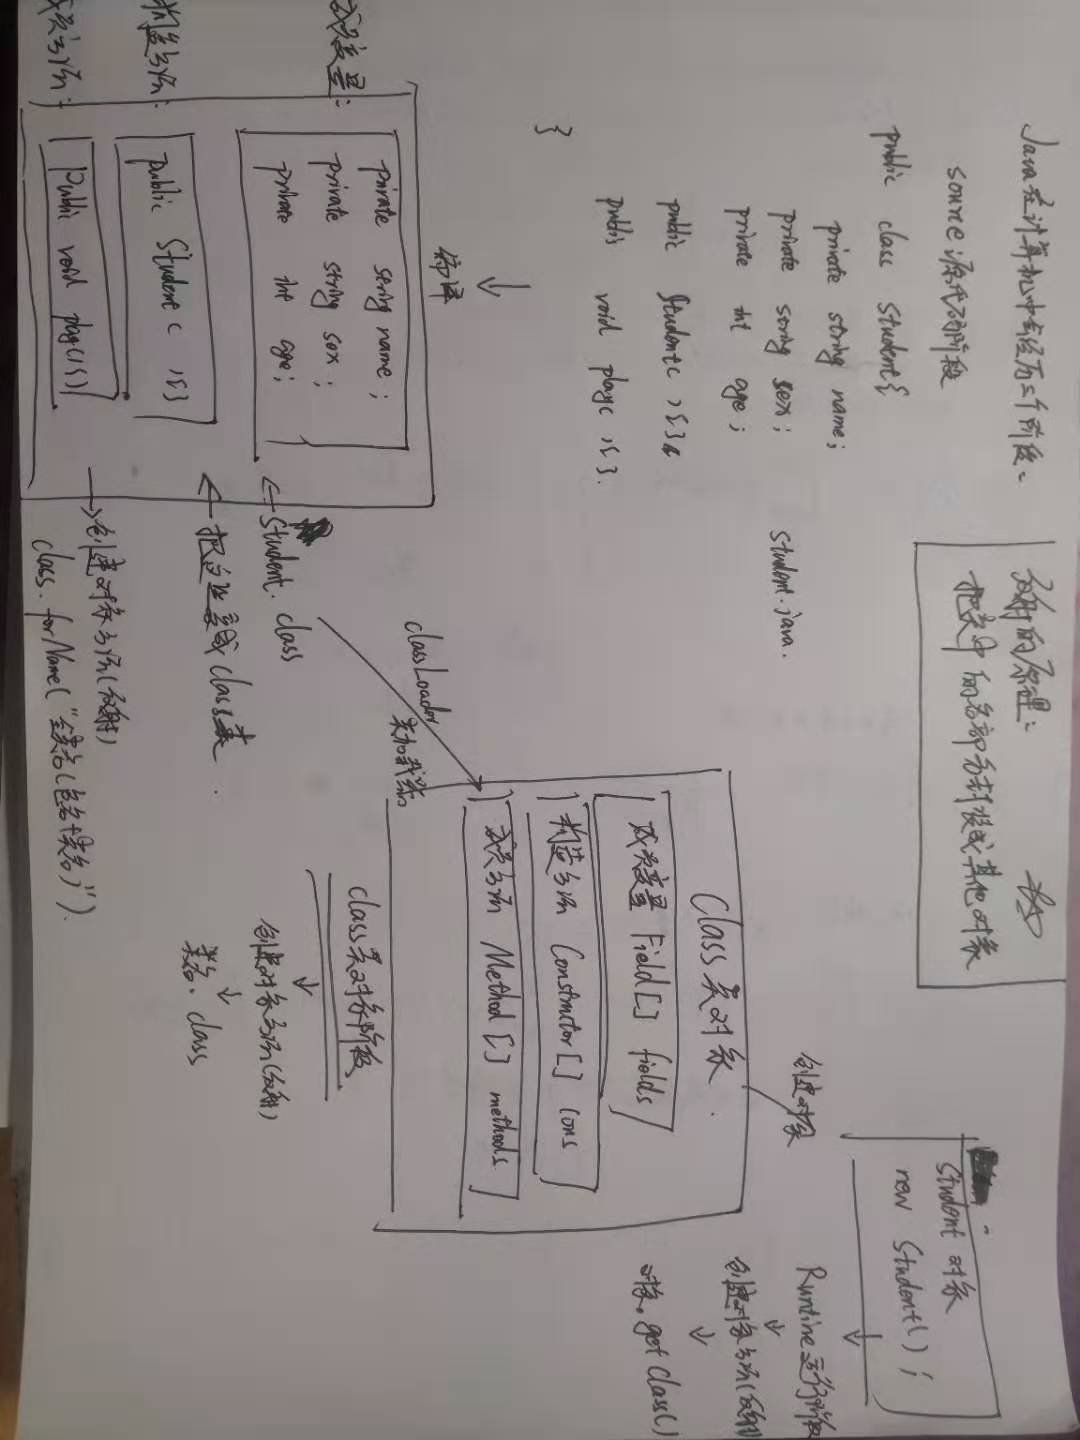 Java在计算机中会经历三个阶段、
source源代码阶段
public class Student{
private string name;
private string sex;
private int age;
public Student( ){}
public void play( ){}.
}
student.java.
反射的原理:
把类中的各部分封装成其他对象
编译
成员变量:
private string name;
private string sex;
private int age;
构造方法:
public Student( ){}
成员方法:
public void play( ){}
Student.class
class类.
创建对象方法(反射)
class.forName("全类名(包名+类名)").
classLoador
类加载器
Class类对象.
成员变量 Field[] fields
构造方法 Constructor[] cons
成员方法 Method[] methods
class类对象阶段
创建对象方法(反射)
类名.class
创建对象
Student对象
new Student();
Runtime运行阶段
创建对象方法(反射)
对象.getClass()